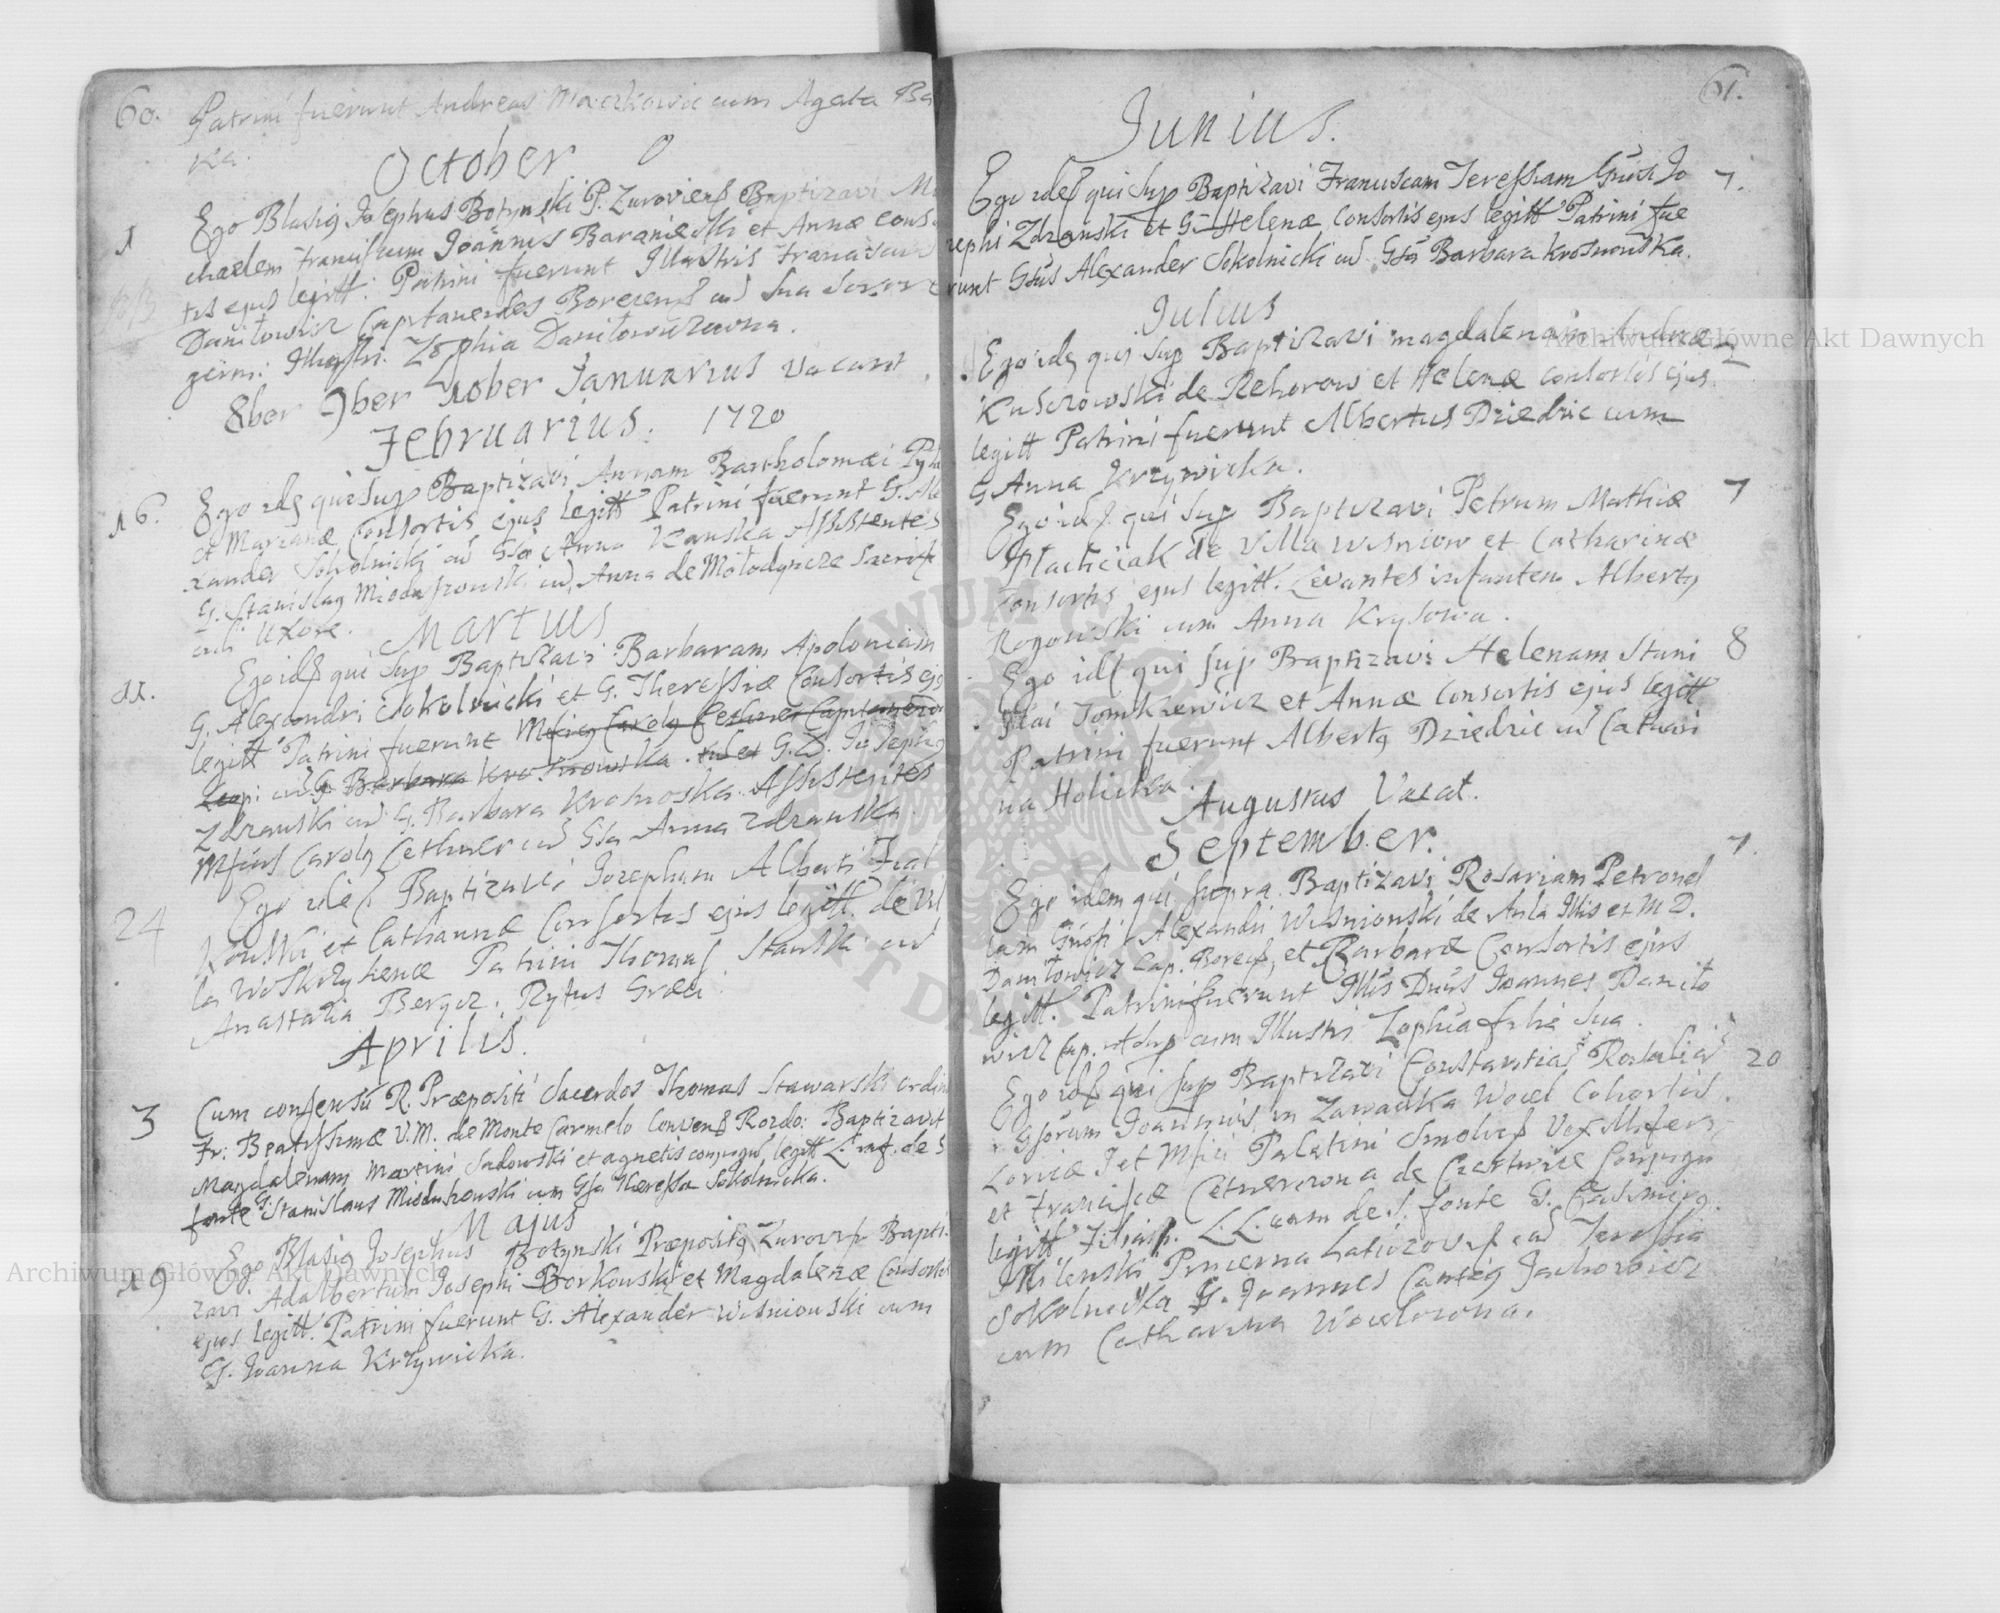 60.
Patrini fuerunt Andreas Maczkowic cum Agata Ba
ka.
October
1
Ego Blasiq Josephus Botynski P. Zuroviens Baptizavi Mi
chaelem Franciscum Joannis Baranieski et Annæ cons
tis ejus legitt: Patrini fuerunt Illustris Franciscus
Danitowicz Capitaneides Borecens cu sua Sorore
germ: Illustri. Zophia Danitowiczowna.
8ber 9ber Xober Januarius vacant.
Februarius. 1720
16.
Ego ide qui sup Baptizavi Annam Bartholomæi
et Marianæ Consortis ejus legitt Patrini fuerunt G. Ale
xander Sokolnicki cu Gsa Anna Assistentes
G. Stanislaq Mioduszowski cu Anna de Motodyncze
uxore.
Martius
21.
Ego ide qui sup Baptizavi Barbaram Apoloniam
G. Alexandri Sokolnicki et G. Theressiæ Consortis ejq
legitt Patrini fuerunt Mficq Carolq Cethner
cu G. Barbara Krosnowska. G. D. Josephq
Zdzanski cu G. Barbara Krosnoska. Assistentes
Mficus Carolq Cethner cu Gsa Anna Zdzanska
24
Ego ide Baptizavi Josephum Alberti Fial
kowski et Catharinæ Consortis ejus legitt. de vil
la Woskrzyhence Patrini Thomas Stanski cu
Anastazia Bergiel. Rytus Græci.
Aprilis.
3
Cum consensu R. Præpositi Sacerdos Thomas Stawarski ordin
Fr: Beatissimæ V.M. de Monte Carmelo Convens Rozdo: Baptizavit
Magdalenam Martini Sadowski et agnetis conjugu legitt L. inf. de S
fonte G. Stanislaus Mioduszowski cum Gsa Theressa Sokolnicka.
Majus
19
Ego Blasiq Josephus Botynski Præpositq Zurovis Bapti
zavi Adalbertum Josephi Borkowski et Magdalenæ Consortis
ejus legitt. Patrini fuerunt G. Alexander Wisniowski cum
G. Joanna Krzywicka.
61.
Junius.
Ego ides qui sup Baptizavi Franciscam Teressiam Gnosi Jo 7.
sephi Zdzanski et G. Helenæ Consortis ejus legitt Patrini fue
runt Gsus Alexander Sokolnicki cu Gsa Barbara Krosnowska.
Julius
Ego ide qui sup Baptizavi magdalenam Andreæ
Kusczowski de Rehorow et Helenæ consortis ejus
legitt Patrini fuerunt Albertus Dziedzic cum
G Anna Krzywicka.
Ego ides qui sup Baptizavi Petrum Mathiæ 7
Ptachciak de villa Wisniow et Catharinæ
Consortis ejus legitt. Levantes infantem Albertq
Rogowski cum Anna Krysowa.
Ego ides qui sup Baptizavi Helenam Stani 8
slai Tomkiewicz et Annæ Consortis ejus legitt
Patrini fuerunt Albertq Dziedzic cu Cathari
na Holicka.
Augustus Vacat.
September.
Ego idem qui supra Baptizavi Rosariam Petronel 7.
lam Gnosi Alexandri Wisniowski de Aula Illis et M D.
Danitowicz Cap. Borecs, et Barbaræ Consortis ejus
legitt. Patrini fuerunt Illis Dnus Joannes Danito
wicz Cap. ut sup cum Illustri Zophia filia sua.
Ego ides qui sup Baptizavi Constantia Rosalia 20
Gsorum Joannis in Zawadka Wocel Cohortis
Loricæ et Mfici Palatini Smolens
et Franciscæ Cetnerzona de Czertwice Conjugu
legitt Filia. L.L. eam de S. fonte G. Casimirq
Milenski Pincerna Laticzovs cu Teressia
Sokolnicka G. Joannes Canteq Jachowicz
cum Catharina Wocelowna.
Archiwum Główne Akt Dawnych
Archiwum Główne Akt Dawnych